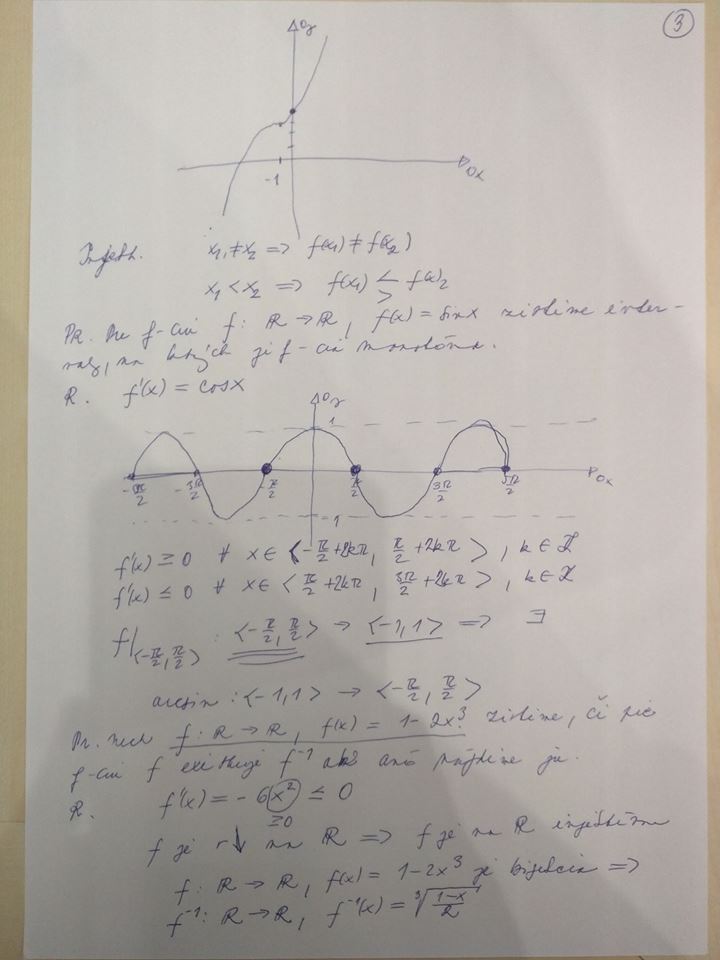 3
Oy
-1
Ox
Injekt. x₁ ≠ x₂ => f(x₁) ≠ f(x₂)
x₁ < x₂ => f(x₁) ≶ f(x)₂
PR. Pre f-ciu f: ℝ → ℝ, f(x) = sinx zistime inter-
valy, na ktorých je f-cia monotónna.
R. f'(x) = cosx
Oy
1
-5π/2 -3π/2 -π/2 π/2 3π/2 5π/2 Ox
-1
f'(x) ≥ 0 ∀ x ∈ <-π/2 + 2kπ, π/2 + 2kπ>, k ∈ ℤ
f'(x) ≤ 0 ∀ x ∈ <π/2 + 2kπ, 3π/2 + 2kπ>, k ∈ ℤ
f|<-π/2, π/2> : <-π/2, π/2> → <-1, 1> => ∃
arcsin : <-1, 1> → <-π/2, π/2>
Pr. nech f: ℝ → ℝ, f(x) = 1 - 2x³. zistime, či pre
f-ciu f existuje f⁻¹ ak áno nájdime ju.
R. f'(x) = -6x² ≤ 0
≥0
f je r↓ na ℝ => f je na ℝ injektívna
f: ℝ → ℝ, f(x) = 1 - 2x³ je bijekcia =>
f⁻¹: ℝ → ℝ, f⁻¹(x) = ∛((1-x)/2)